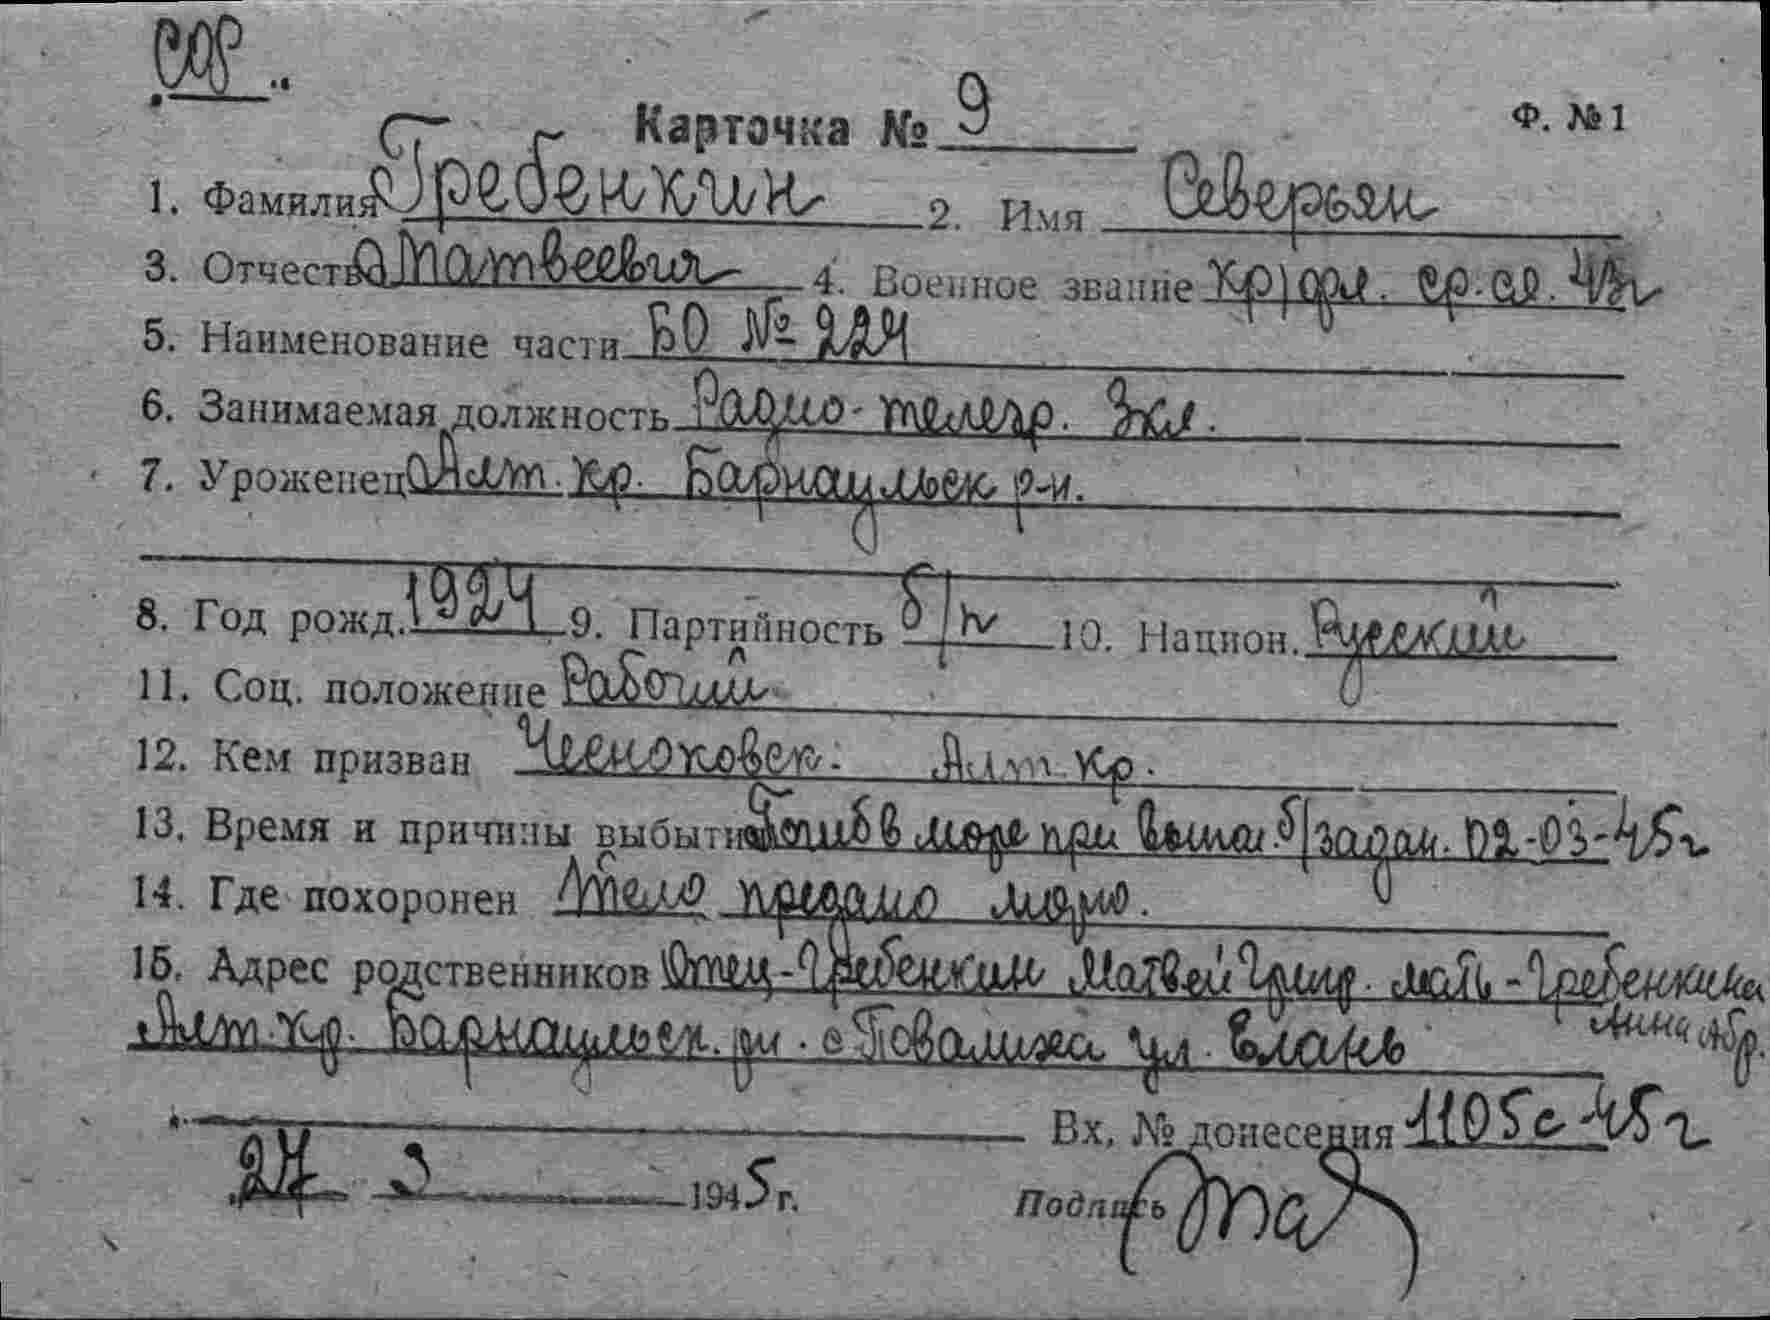 Карточка № 9 Ф. № 1
1. Фамилия Гребенкин 2. Имя Северьян
3. Отчество Матвеевич 4. Военное звание кр/фл. ср. сл. 43г
5. Наименование части БО № 224
6. Занимаемая должность Радио-телегр. 3кл.
7. Уроженец Алт. кр. Барнаульск р-н.
8. Год рожд. 1924 9. Партийность б/п 10. Национ. Русский
11. Соц. положение Рабочий
12. Кем призван Чесноковск. Алт. кр.
13. Время и причины выбытия Погиб в море при вып. б/задан. 02-03-45г
14. Где похоронен Тело предано морю.
15. Адрес родственников Отец-Гребенкин Матвей Григ. мать-Гребенкина
Анна Абр.
Алт. кр. Барнаульск. рн. с Повалиха ул. Елань
Вх. № донесения 1105с 45г
27 3 1945 г.
Подпись